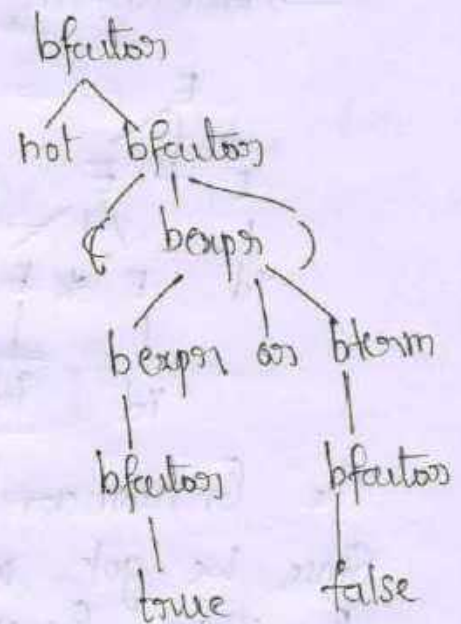 bfactor
not bfactor
( bexpr )
bexpr or bterm
bfactor bfactor
true false